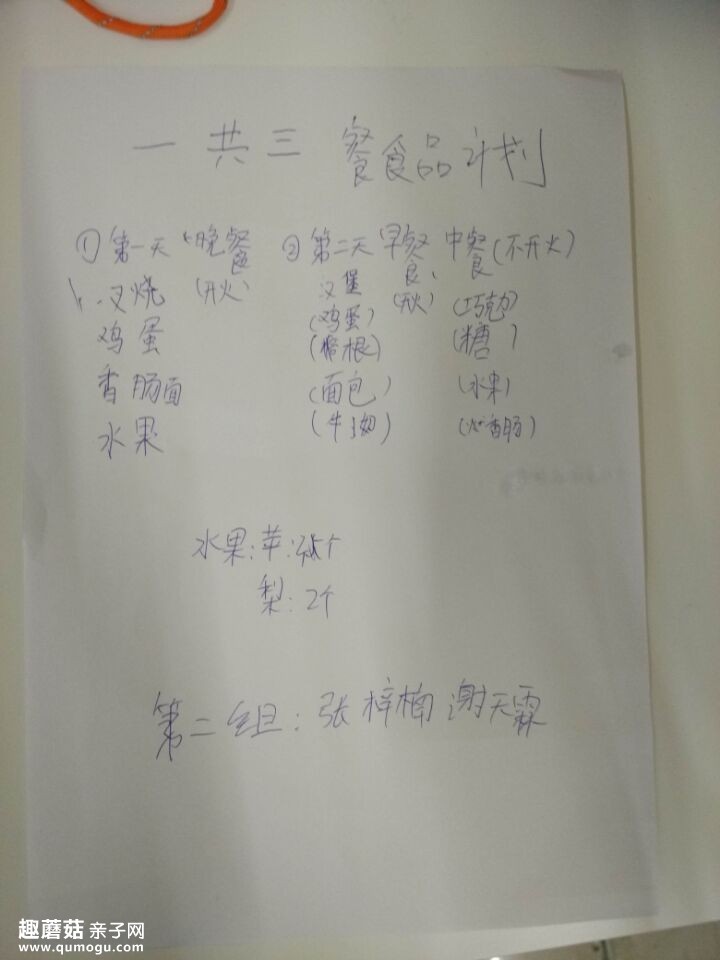 一共三餐食品计划
①第一天 晚餐 ②第二天 早餐 中餐(不开火)
叉烧 (开火) 汉堡 (开火) (巧克力)
鸡蛋 (鸡蛋) (糖)
香肠面 (面包) (水果)
水果 (牛奶) (火香肠)
水果:苹:个
梨:2个
第二组:张梓楠 谢天霖
趣蘑菇 亲子网
www.qumogu.com